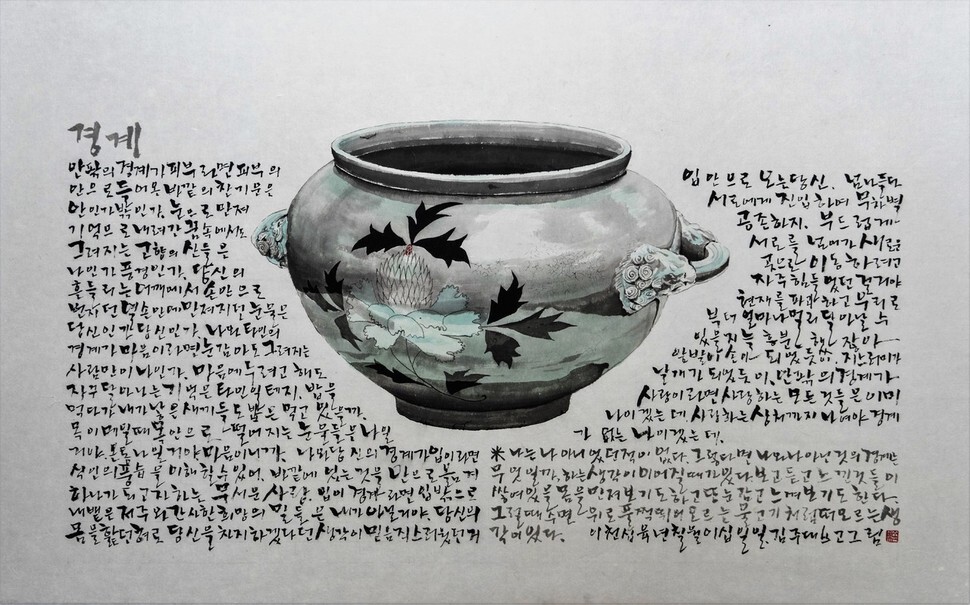 경계
안팎의 경계가 피부라면 피부의
안으로 들어온 바깥의
안인가 밖인가. 눈으로 만져
기억으로 내려간 꿈속에서도
그려지는 고향의 산들은
나인가 풍경인가. 당신의
흔들리는 어깨에서 손안으로
번지던 만져지던
당신인가. 나와 타인의
경계가 마음이라면 눈감아도 그려지는
사람만이 나인가. 마음에 두려고 해도
자꾸 달아나는 기억은 타인일테지. 밥을
먹다가 내가 낳은 새끼들도 밥은 먹고 있을까.
목이 메일때 목 안으로 떨어지는 눈물들은 나일
거야. 온통 나일거야 마음이니까. 나와 당신의 경계가 입이라면
식인의 풍습을 이해할 수 있어. 바깥에 있는 것을 안으로 옮겨
하나가 되고자 하는 무서운 사랑. 입이 경계라면 입 밖으로
내뱉은 저주와 간사한 희망의 말들은 내가 아닐거야. 당신의
몸을 핥던 혀로 당신을 차지하겠다던 생각이 믿음직스러웠던 거
입 안으로 오는 당신. 넘나들다
서로에게 진입하여
공존하지. 부드럽게
서로를 넘어가 새로운
곳으로 이동하려고
자꾸 힘들었던 거겠지
현재를 파괴하고 부리로
부터 얼마나 멀리 달아날 수
있을지
손이 되었듯
날개가 되었듯이. 안팎의 경계가
사랑이라면 사랑하는 모든 것들은 이미
나이겠는데 사랑하는 상처까지 나여야 경계
가 없는 나이겠는데.
※ 나는 나 아니었던 적이 없다. 그렇다면 나와 나 아닌 것의 경계는
무엇일까, 하는 생각이 이어질 때가 있다. 보고 듣고 느낀 것들이
쌓여있을 몸을 만져보기도 하고 눈 감고 느껴보기도 한다.
그럴 때 수면 위로 풀쩍 뛰어오르는 물고기처럼 떠오르는 생
각이 있다. 이천십육년 칠월 이십일일 김주대 쓰고 그림